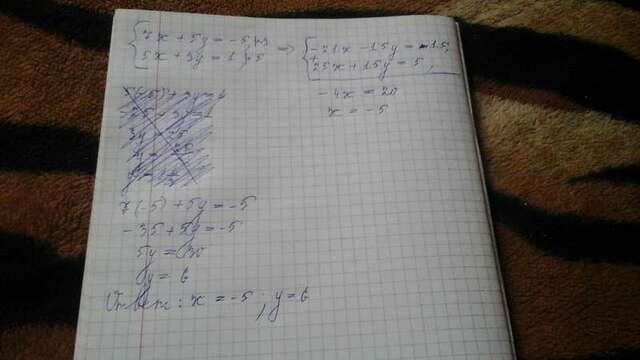 7x + 5y = -5 |·3
5x + 3y = 1 |·5
=> -21x - 15y = -15;
+
25x + 15y = 5,
-4x = 20
x = -5
7(-5) + 5y = -5
-35 + 5y = -5
5y = 30
y = 6
Ответ: x = -5, y = 6